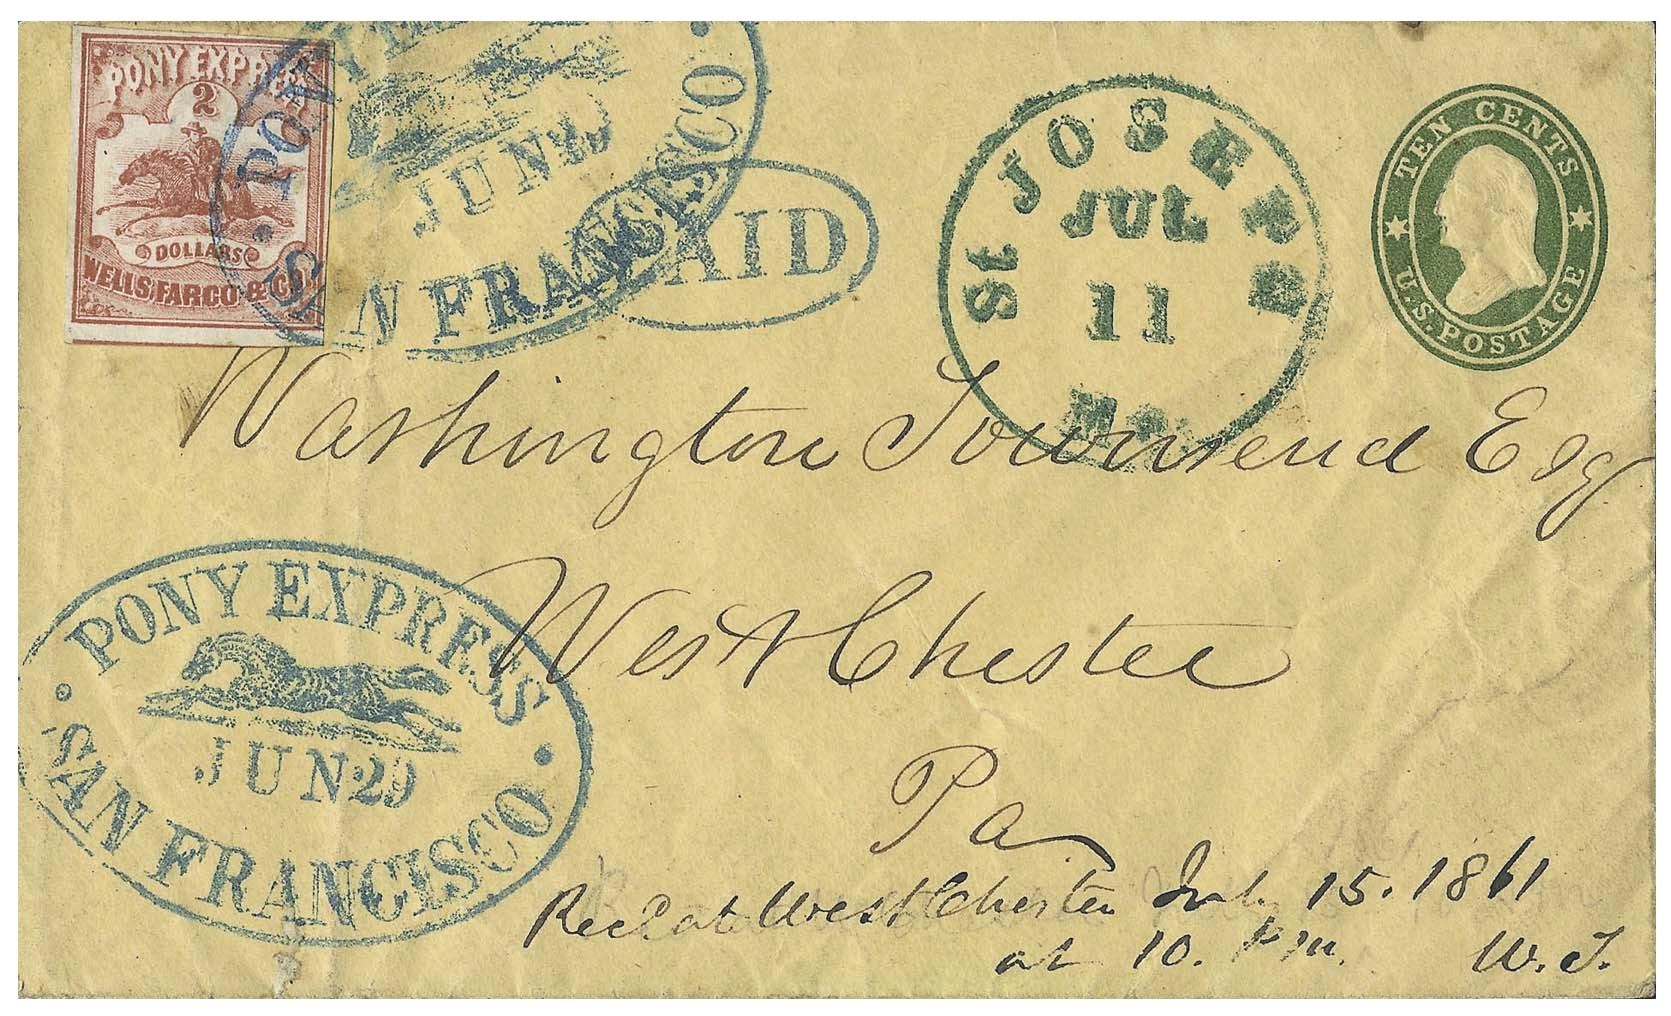 PONY EXPRESS
2
DOLLARS
WELLS, FARGO & CO
PONY
JUN 29
SAN FRANCISCO
PAID
St JOSEPH
JUL
11
Mo.
TEN CENTS
U.S. POSTAGE
Washington Townsend Esq
West Chester
Pa
PONY EXPRESS
JUN 29
SAN FRANCISCO
Recd at West Chester July 15. 1861
at 10. P.M. W. T.